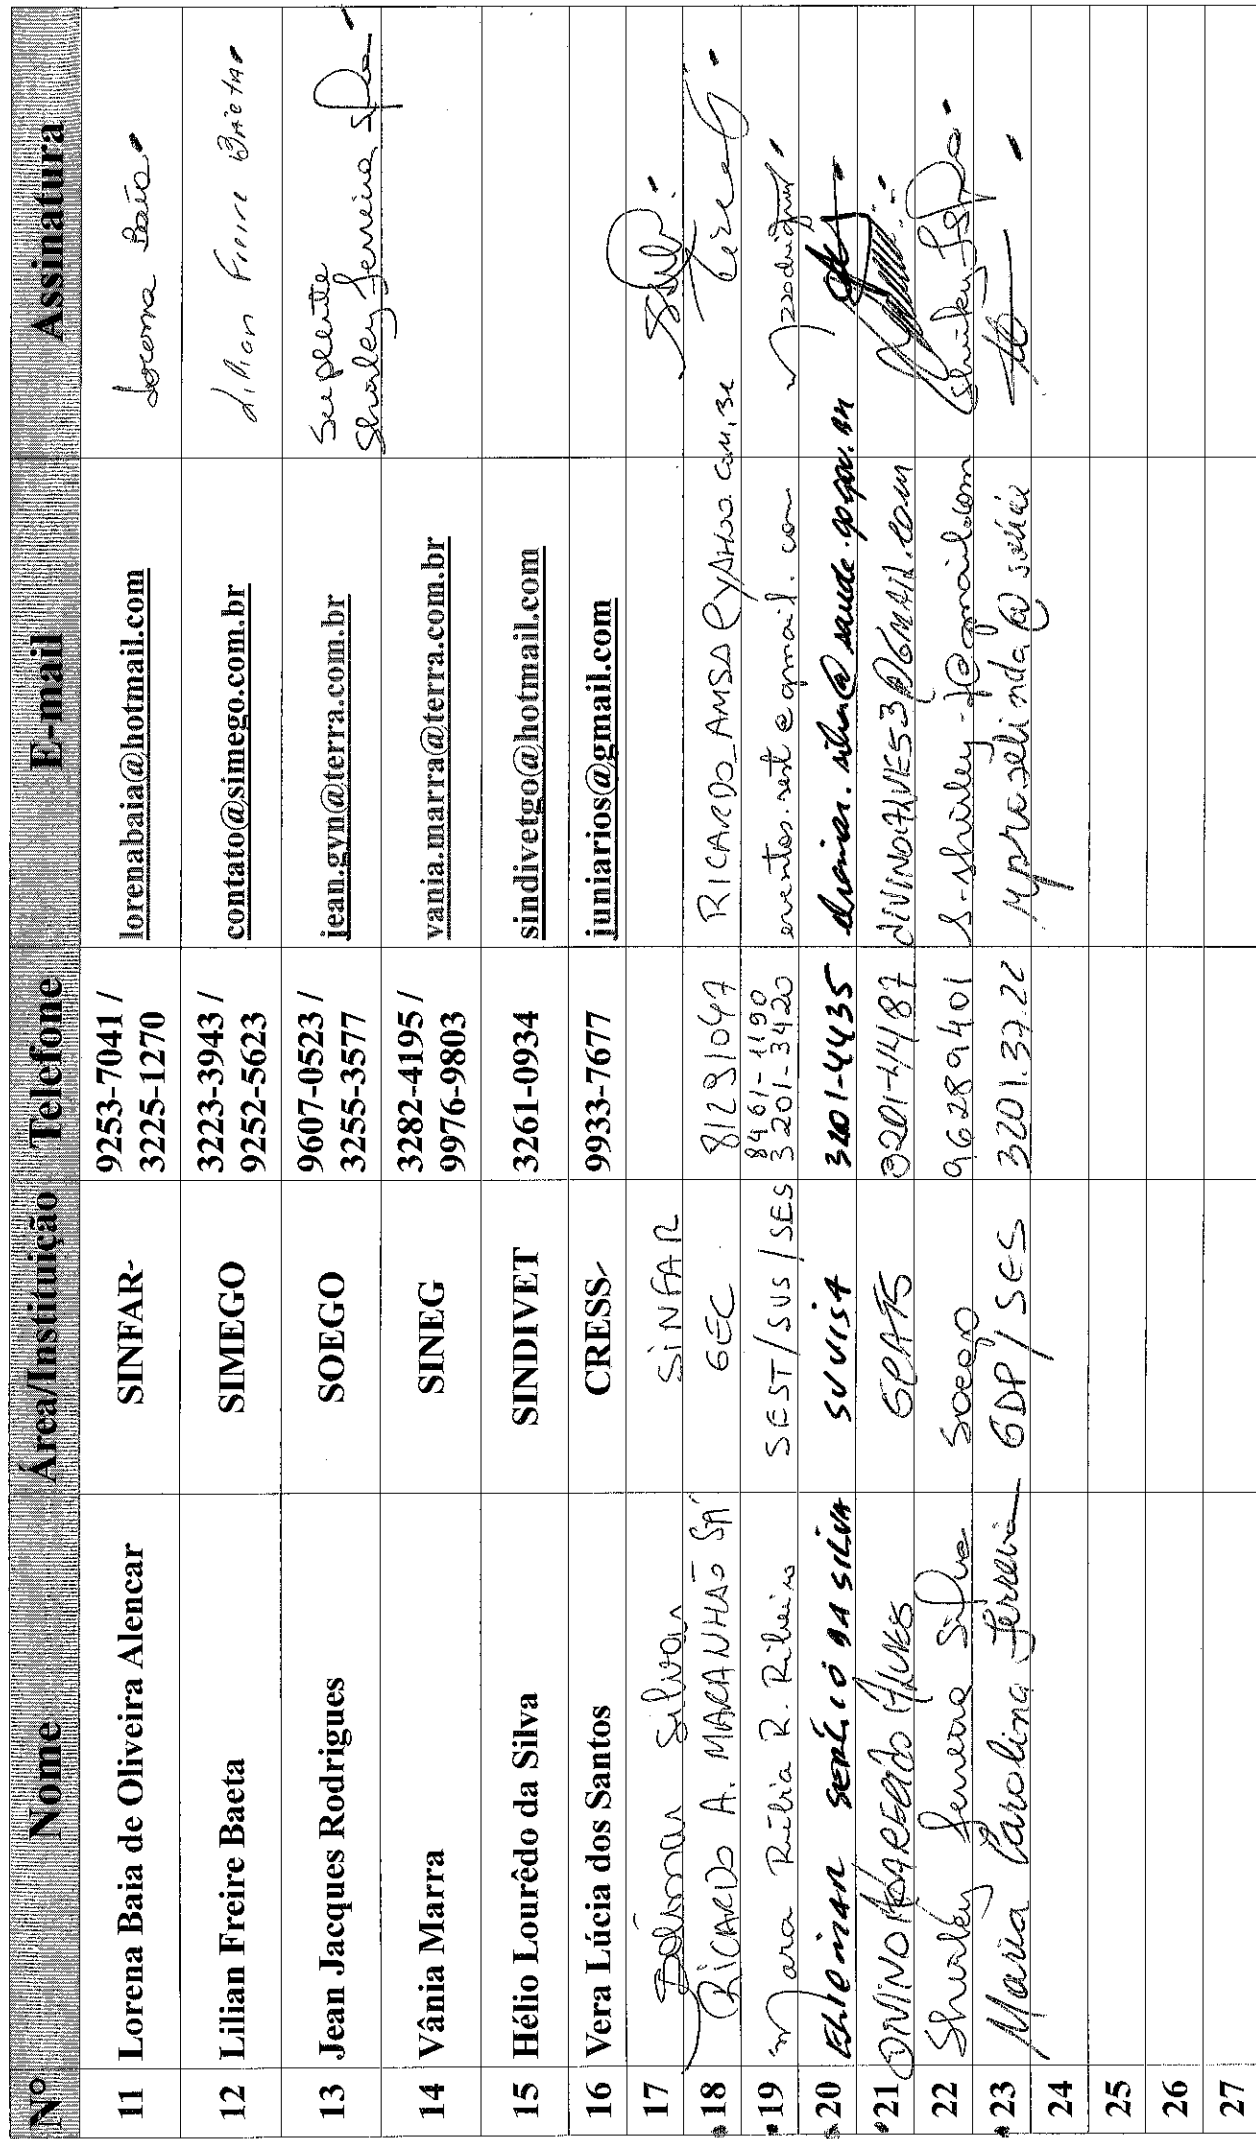 Nº Nome Área/Instituição Telefone E-mail Assinatura
11 Lorena Baia de Oliveira Alencar SINFAR- 9253-7041 / lorenabaia@hotmail.com Lorena Baia
3225-1270
12 Lilian Freire Baeta SIMEGO 3223-3943 / contato@simego.com.br Lilian Freire Baeta
9252-5623
13 Jean Jacques Rodrigues SOEGO 9607-0523 / jean.gyn@terra.com.br Suplente
3255-3577 Shirley Ferreira Silva
14 Vânia Marra SINEG 3282-4195 / vania.marra@terra.com.br
9976-9803
15 Hélio Lourêdo da Silva SINDIVET 3261-0934 sindivetgo@hotmail.com
16 Vera Lúcia dos Santos CRESS- 9933-7677 juniarios@gmail.com
17 Silva SINFAR
18 RICARDO A. MARANHÃO SÁ GEC 81291047
19 Mara Rúbia R. Ribeiro SEST/SUS/SES 8461-1190 eventos.sest@gmail.com
3201-3420
20 SÉRGIO DA SILVA SUVISA 3201-4435 @saude.go.gov.
21 DIVINO ALVES 3201-4487 DIVINOALVES53@GMAIL.COM
22 Shirley Ferreira Silva Soego 96289401 s-shirley-f@gmail.com
23 Maria Carolina Ferreira GDP/SES 3201.37.22
24
25
26
27